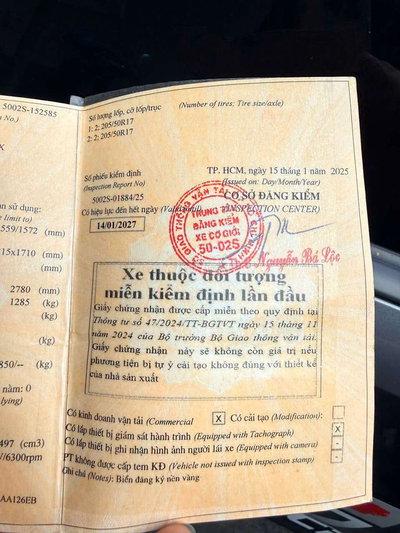 5002S-152585
o No.)
X
ăn sử dụng:
e limit to)
559/1572 (mm)
515x1710 (mm)
(mm)
2780 (mm)
1285 (kg)
(kg)
(kg)
(kg)
850/-- (kg)
nằm: 0
lying)
497 (cm3)
/6300rpm
AA126EB
Số lượng lốp, cỡ lốp/trục (Number of tires; Tire size/axle)
1: 2; 205/50R17
2: 2; 205/50R17
Số phiếu kiểm định
(Inspection Report No)
5002S-01884/25
Có hiệu lực đến hết ngày
14/01/2027
TP. HCM, ngày 15 tháng 1 năm 2025
(Issued on: Day/Month/Year)
CƠ SỞ ĐĂNG KIỂM
(INSPECTION CENTER)
GIAO THÔNG VẬN TẢI
TRUNG TÂM
ĐĂNG KIỂM
XE CƠ GIỚI
50-02S
Nguyễn Bá Lộc
Xe thuộc đối tượng
miễn kiểm định lần đầu
Giấy chứng nhận được cấp miễn theo quy định tại
Thông tư số 47/2024/TT-BGTVT ngày 15 tháng 11
năm 2024 của Bộ trưởng Bộ Giao thông vận tải.
Giấy chứng nhận này sẽ không còn giá trị nếu
phương tiện bị tự ý cải tạo không đúng với thiết kế
của nhà sản xuất
Có kinh doanh vận tải (Commercial X Có cải tạo (Modification):
Có lắp thiết bị giám sát hành trình (Equipped with Tachograph) X
Có lắp thiết bị ghi nhận hình ảnh người lái xe (Equipped with camera) -
PT không được cấp tem KĐ (Vehicle not issued with inspection stamp) -
Ghi chú (Notes): Biển đăng ký nền vàng